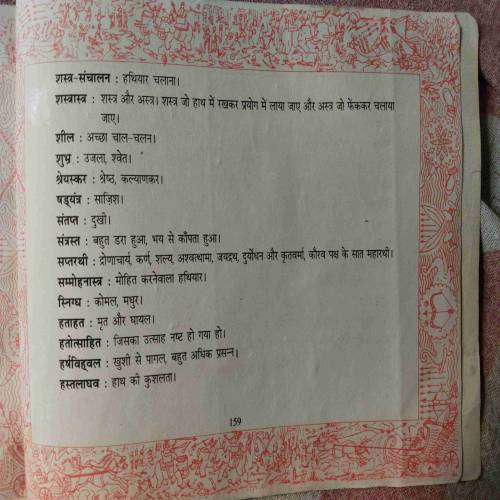 शस्त्र-संचालन : हथियार चलाना।
शस्त्रास्त्र : शस्त्र और अस्त्र। शस्त्र जो हाथ में रखकर प्रयोग में लाया जाए और अस्त्र जो फेंककर चलाया
जाए।
शील : अच्छा चाल-चलन।
शुभ्र : उजला, श्वेत।
श्रेयस्कर : श्रेष्ठ, कल्याणकर।
षड्यंत्र : साज़िश।
संतप्त : दुखी।
संत्रस्त : बहुत डरा हुआ, भय से काँपता हुआ।
सप्तरथी : द्रोणाचार्य, कर्ण, शल्य, अश्वत्थामा, जयद्रथ, दुर्योधन और कृतवर्मा, कौरव पक्ष के सात महारथी।
सम्मोहनास्त्र : मोहित करनेवाला हथियार।
स्निग्ध : कोमल, मधुर।
हताहत : मृत और घायल।
हतोत्साहित : जिसका उत्साह नष्ट हो गया हो।
हर्षविह्वल : खुशी से पागल, बहुत अधिक प्रसन्न।
हस्तलाघव : हाथ की कुशलता।
159